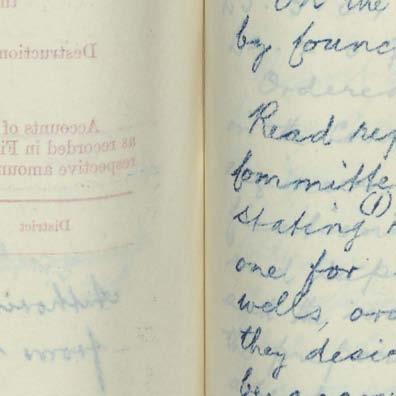 Destruction
Accounts of
as recorded in Fi
respective amoun
District
On the
by Counc
Ordered
Read rep
Committe
stating (1)
one for
wells, or
they desi